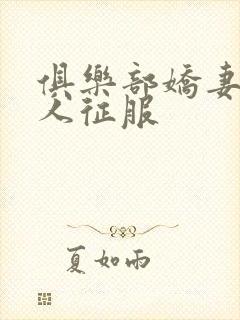 俱樂部嬌妻
人征服
夏如雨